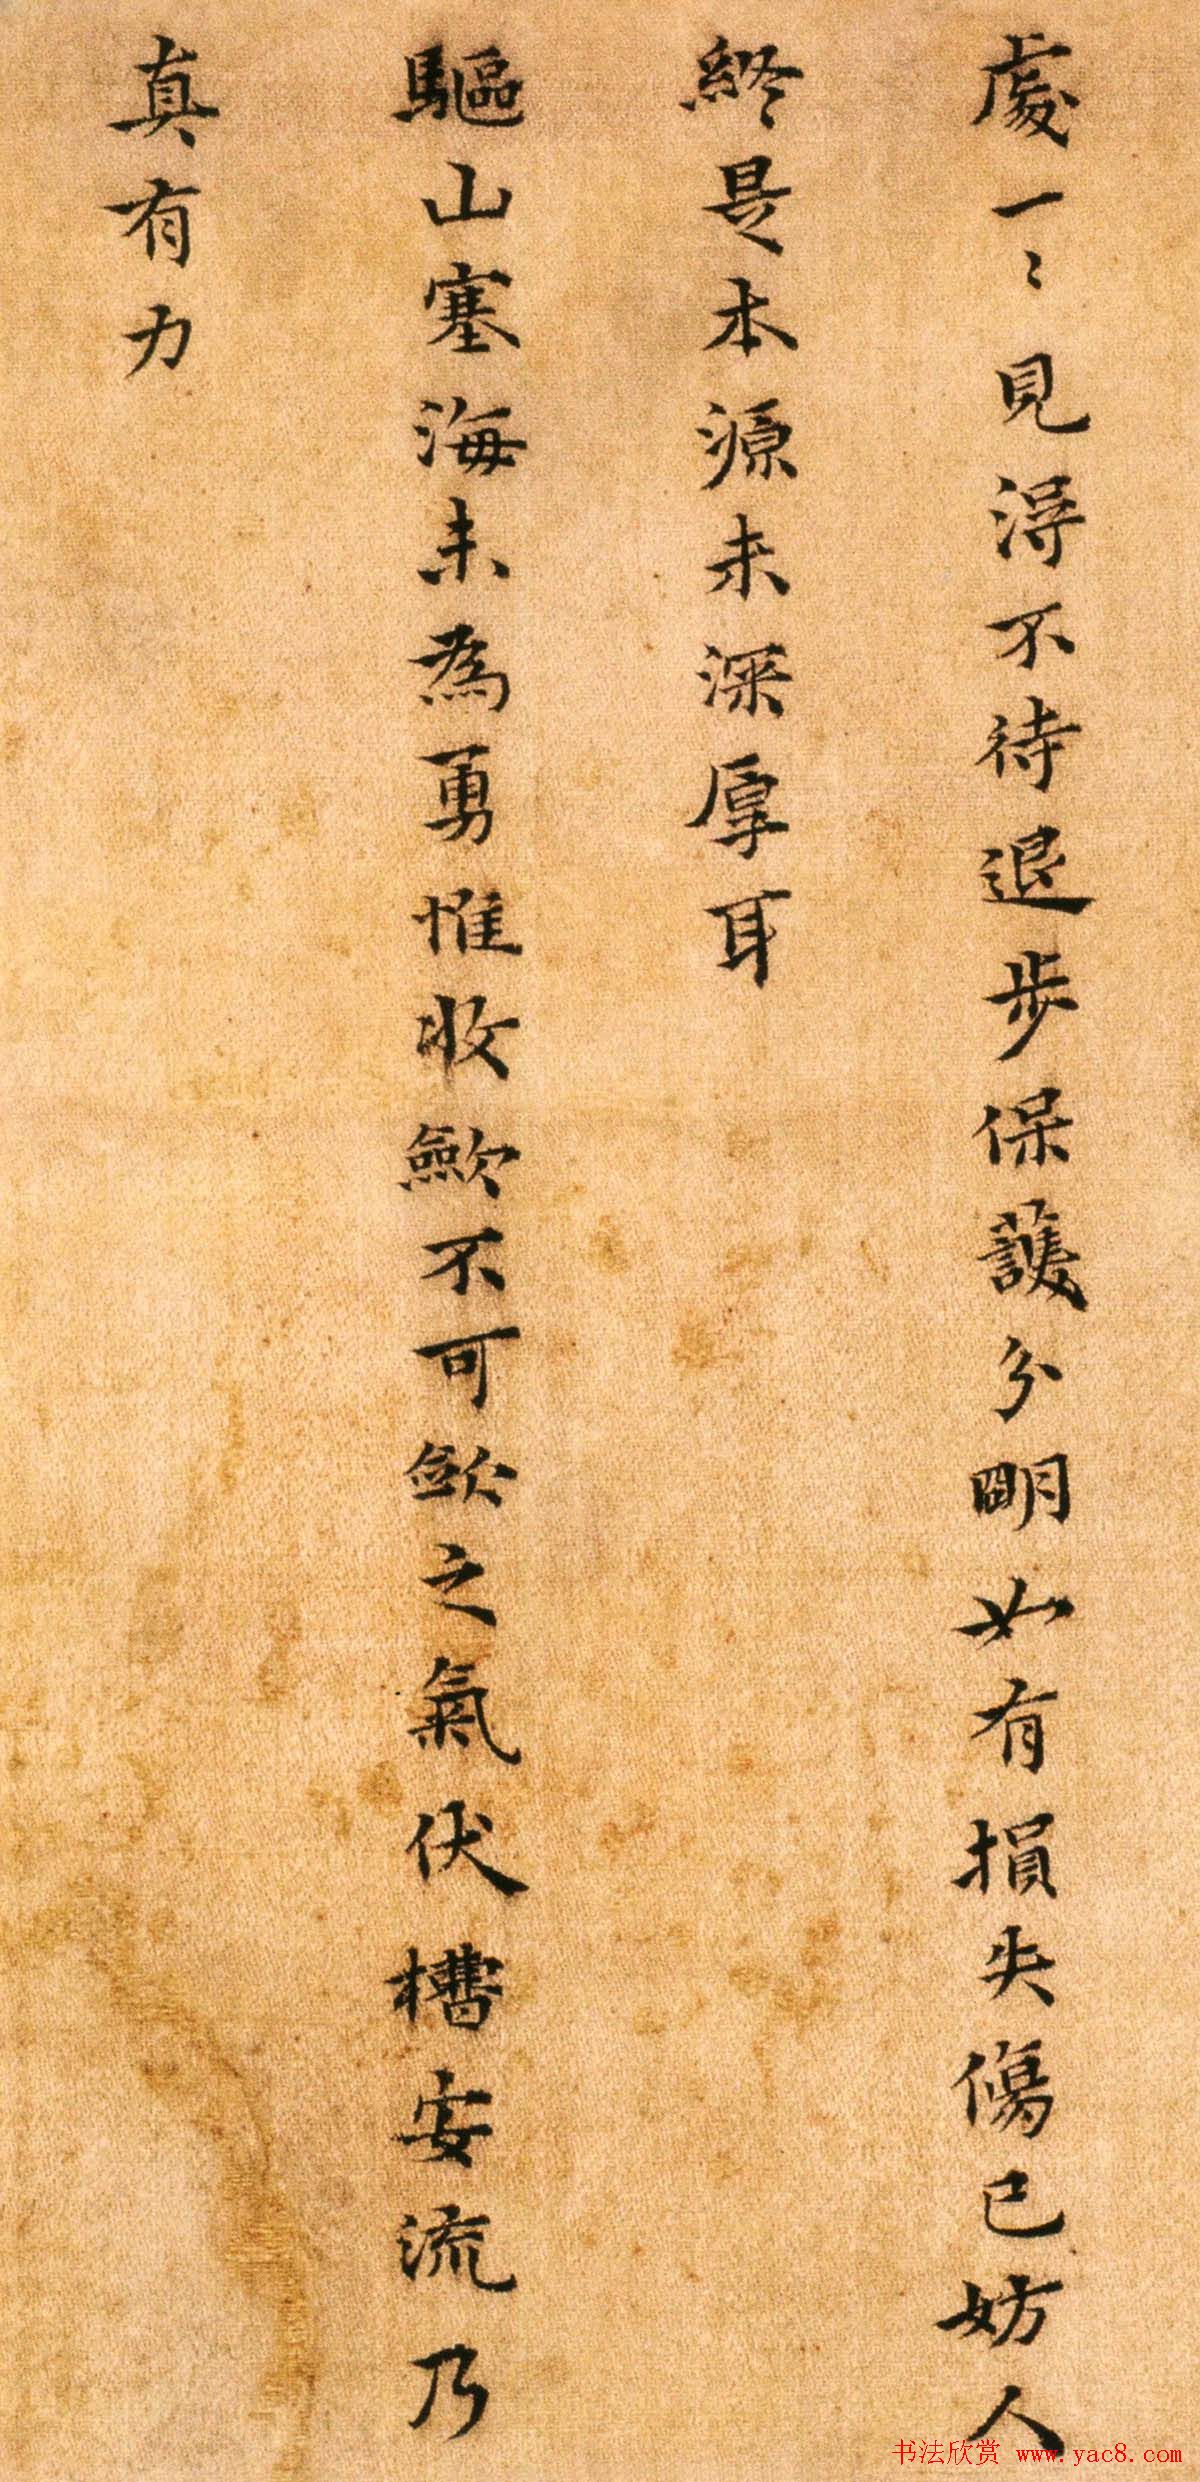 處一〻見淂不待退步保護分明如有損失傷已妨人
終是本源未深厚耳
驅山塞海未為勇惟收歛不可歛之氣伏槽安流乃
真有力
书法欣赏 www.yac8.com